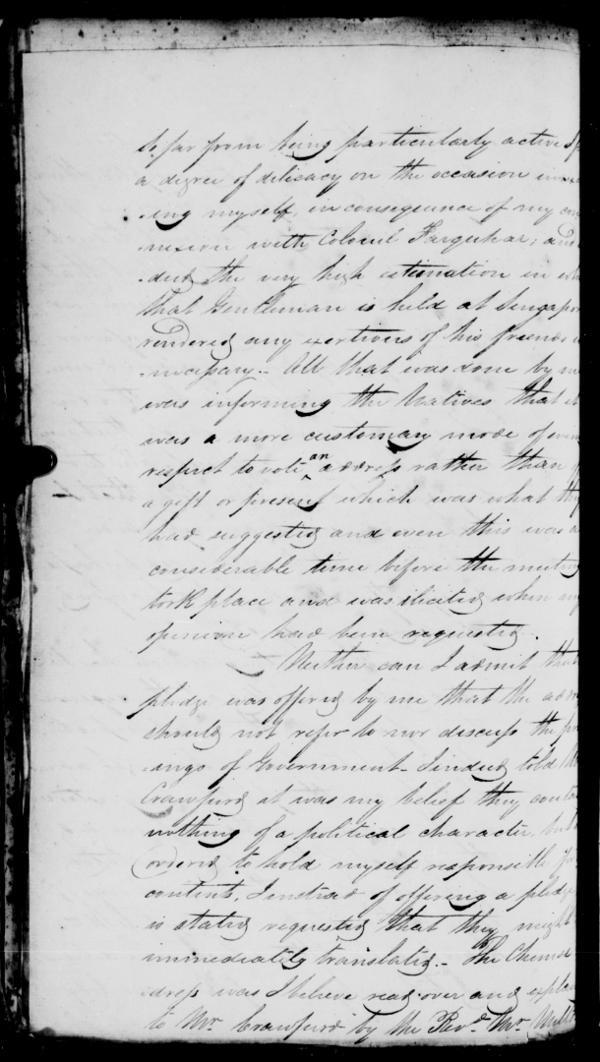 so far from being particularly active I f
a degree of delicacy on the occasion in
ing myself, in consequence of my con
nexion with Colonel Farquhar; and
deed the very high estimation in wh
that Gentleman is held at Singapor
rendered any exertions of his friends u
necessary.- All that was done by m
was informing the Natives that it
was a more customary mode of
respect to vote an address rather than
a gift or present which was what th
had suggested and even this was a
considerable time before the meeting
took place and was elicited when my
opinion had been requested.
Neither can I admit that
pledge was offered by me that the add
should not refer to nor discuss the pr
ings of Government - I indeed told Mr
Crawfurd it was my belief they conta
nothing of a political character, but
to hold myself responsible for
contents, Instead of offering a pledge
is stated requested that they might
immediately translated.- The Chinese
dress was I believe read over and expla
to Mr. Crawfurd by the Revd. Mr. Mil